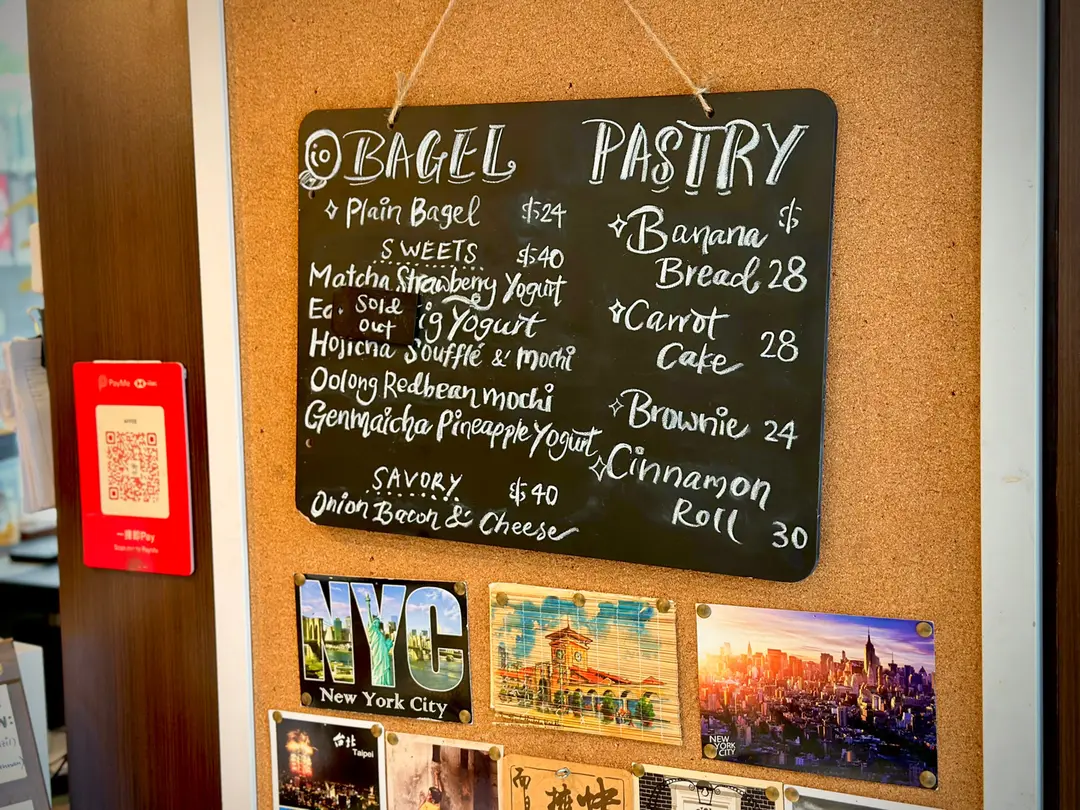 BAGEL
Plain Bagel $24
SWEETS $40
Matcha Strawberry Yogurt
Sold
out
ig Yogurt
Hojicha Soufflé & mochi
Oolong Redbean mochi
Genmaicha Pineapple Yogurt
SAVORY $40
Onion Bacon & Cheese
PASTRY
$
Banana
Bread 28
Carrot
Cake 28
Brownie 24
Cinnamon
Roll 30
PayMe
Pay
NYC
New York City
NEW
YORK
CITY
台北
Taipei